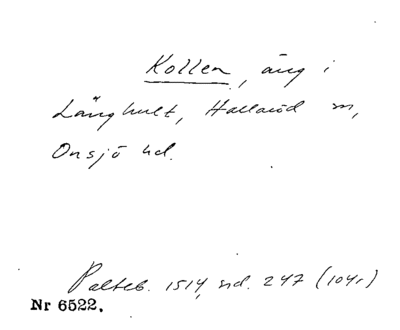 Kollen, äng i
Långhult, Halland sn,
Onsjö hd.
Palteb. 1514, sid. 247 (104r)
Nr 6522.